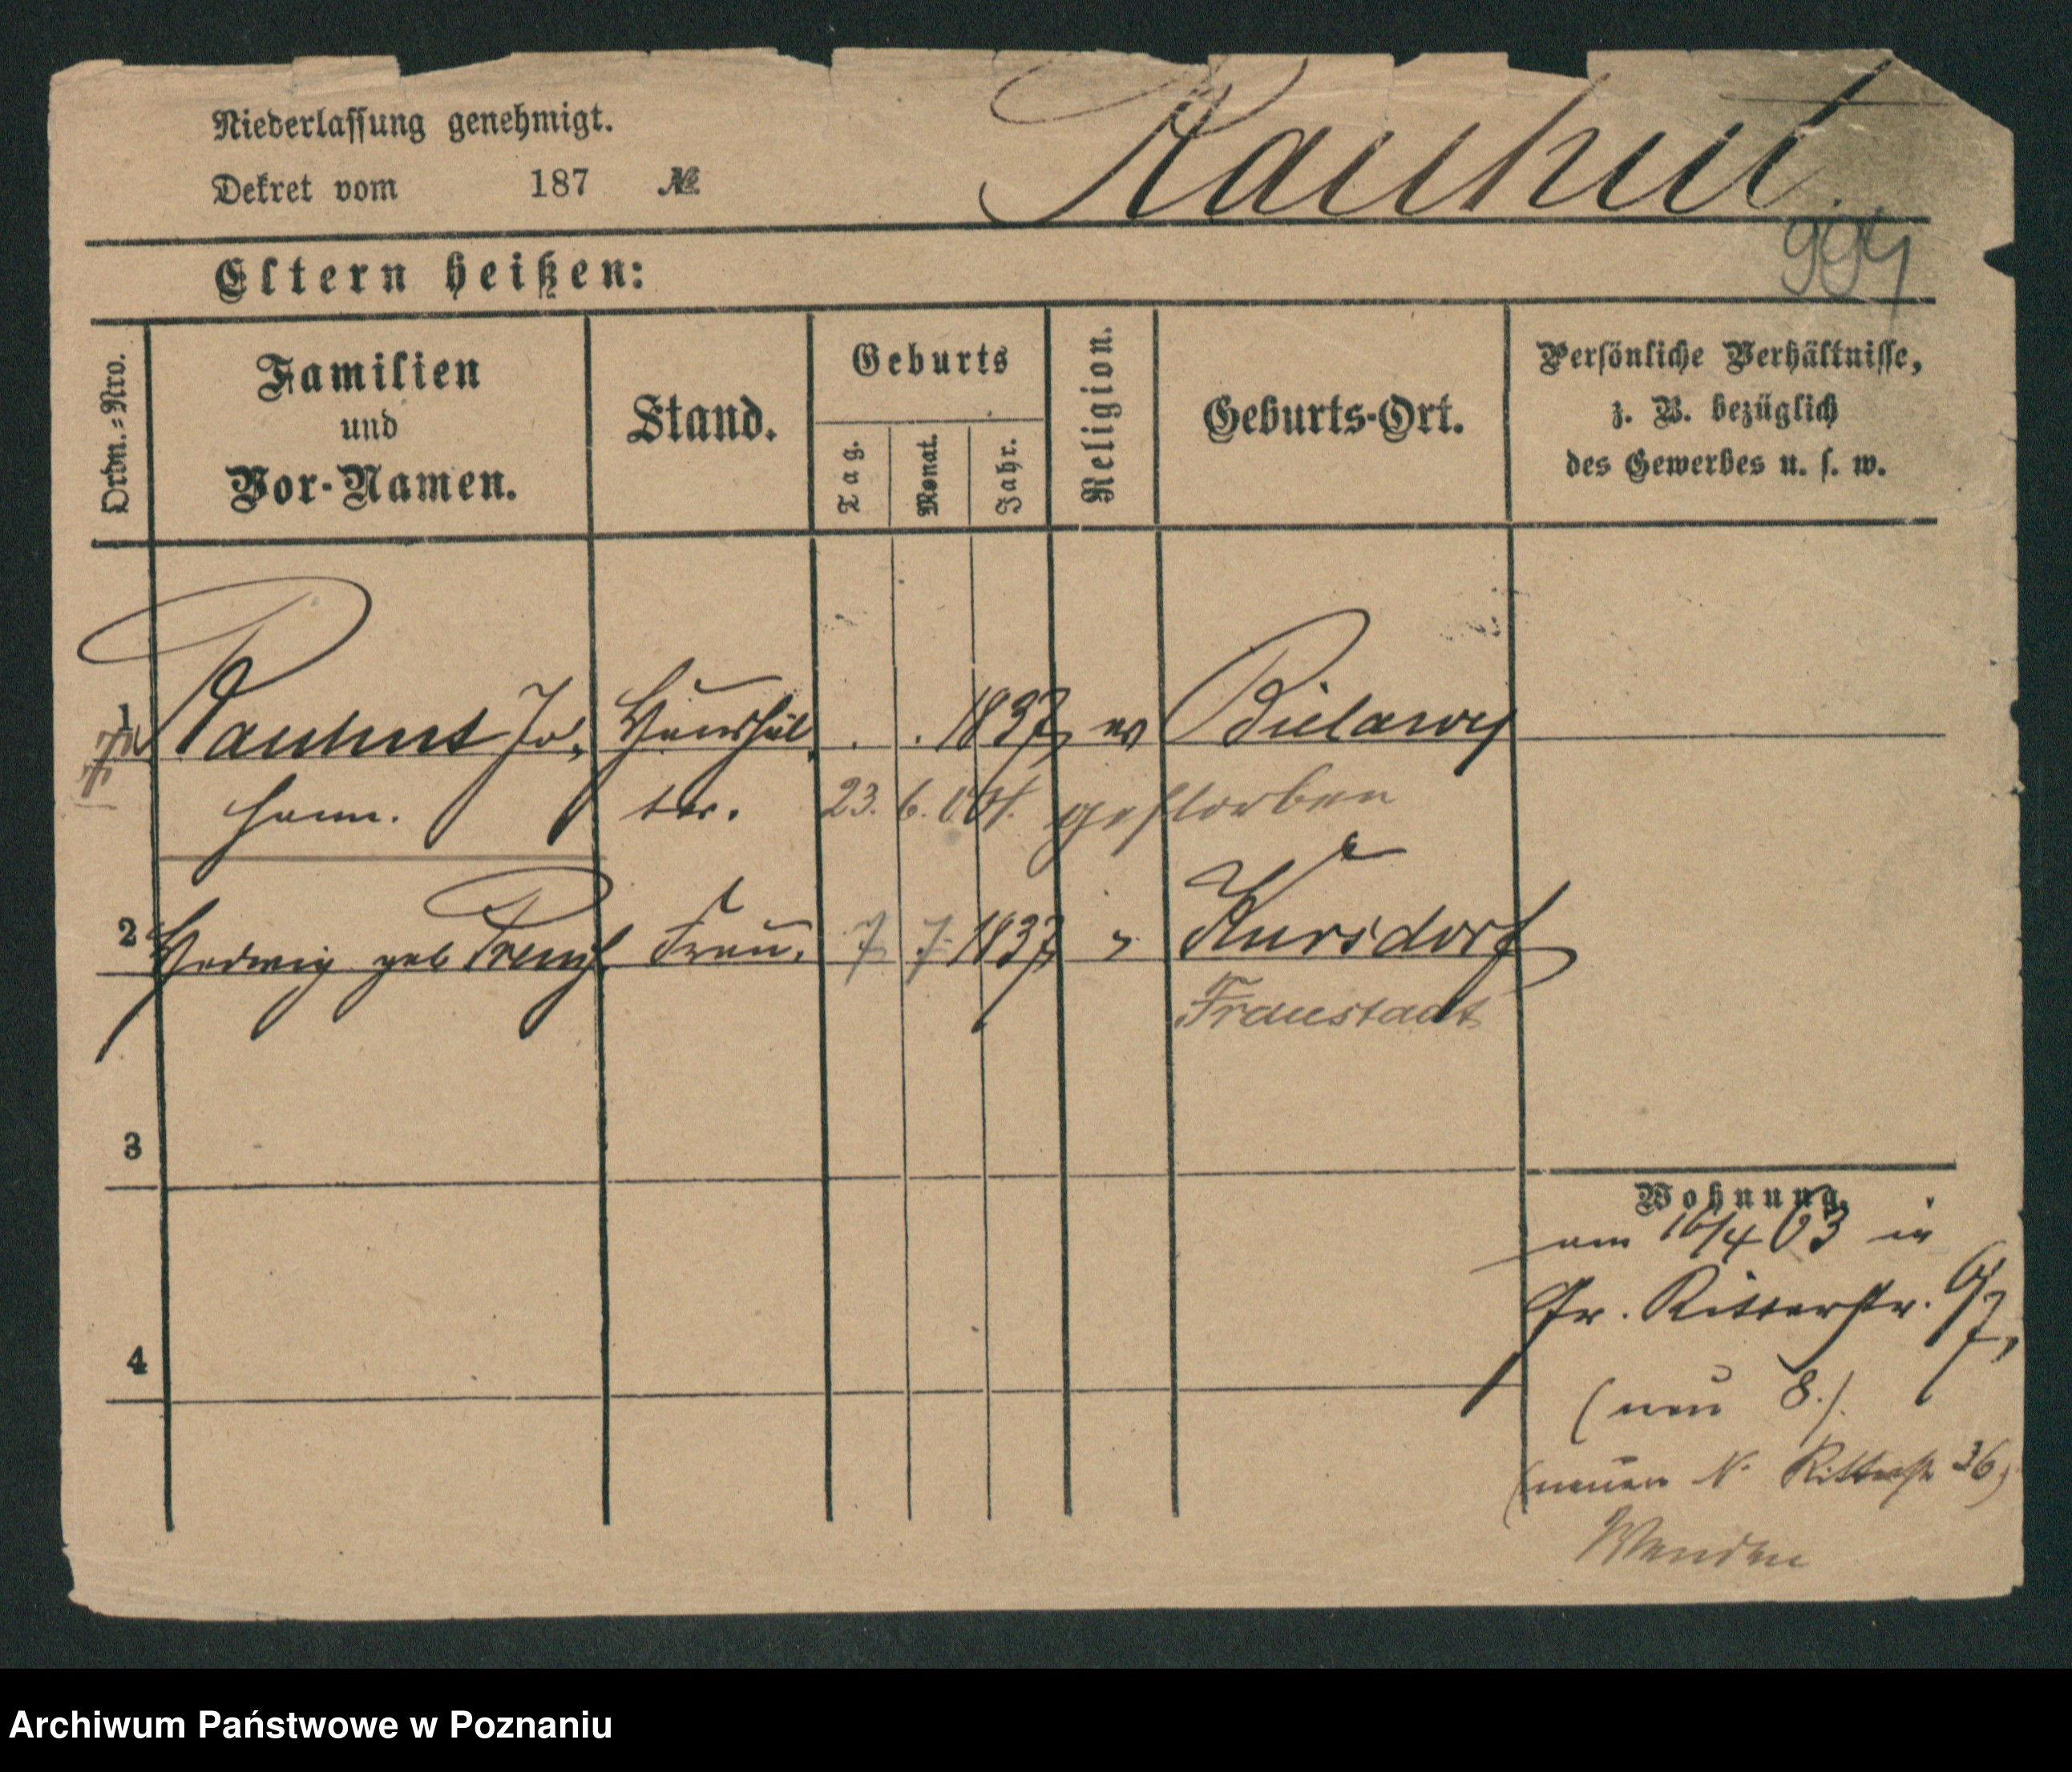 Niederlassung genehmigt.
Dekret vom 187 №
Rauhut
994
Eltern heißen:
Ordn.-Nro.
Familien
und
Vor-Namen.
Stand.
Geburts
Tag.
Monat.
Jahr.
Religion.
Geburts-Ort.
Persönliche Verhältnisse,
z. B. bezüglich
des Gewerbes u. s. w.
1 Rauhut Jo- Haushäl- . . 1837 ev Bielawy
hann. ter. 23. 6. 01. gestorben
2 Hedwig geb 7 7 1837 " Kursdorf
Frau.
Fraustadt
3
4
Wohnung.
am 16/4 03 in
Gr. Ritterstr. 6/7,
(neu 8.)
(neuer N. Ritterstr 36)